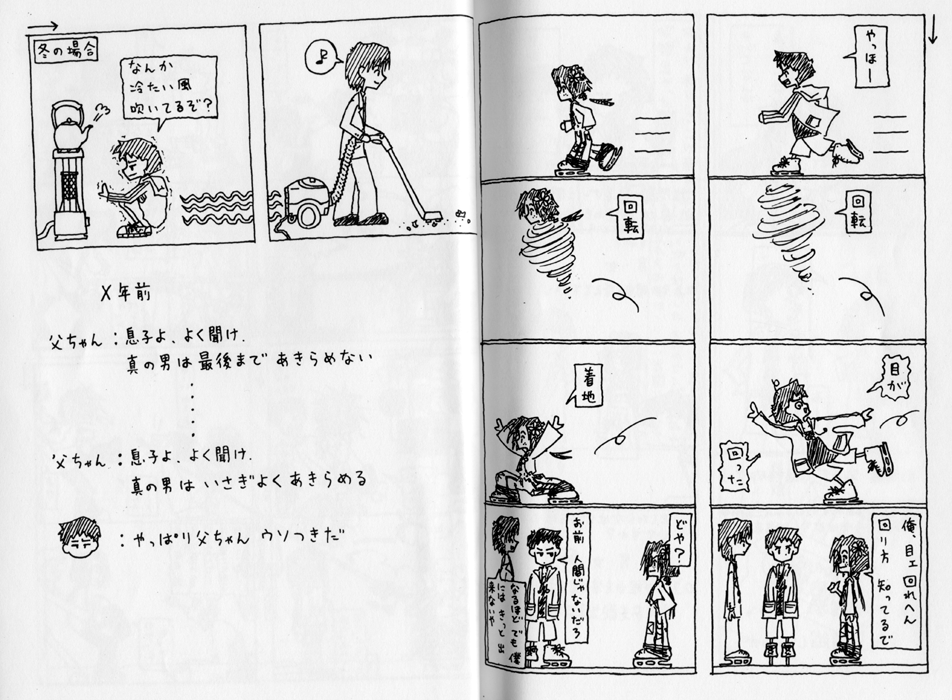 冬の場合
なんか
冷たい風
吹いてるぞ?
♪
X年前
父ちゃん:息子よ、よく聞け.
真の男は最後まであきらめない
父ちゃん:息子よ、よく聞け.
真の男はいさぎよくあきらめる
:やっぱり父ちゃんウソつきだ
やっほー
回転
目が
回った
俺、目ェ回れへん
回り方 知ってるで
回転
着地
どや?
お前 人間じゃないだろ
なるほど でも 僕
には きっと 出
来ないや